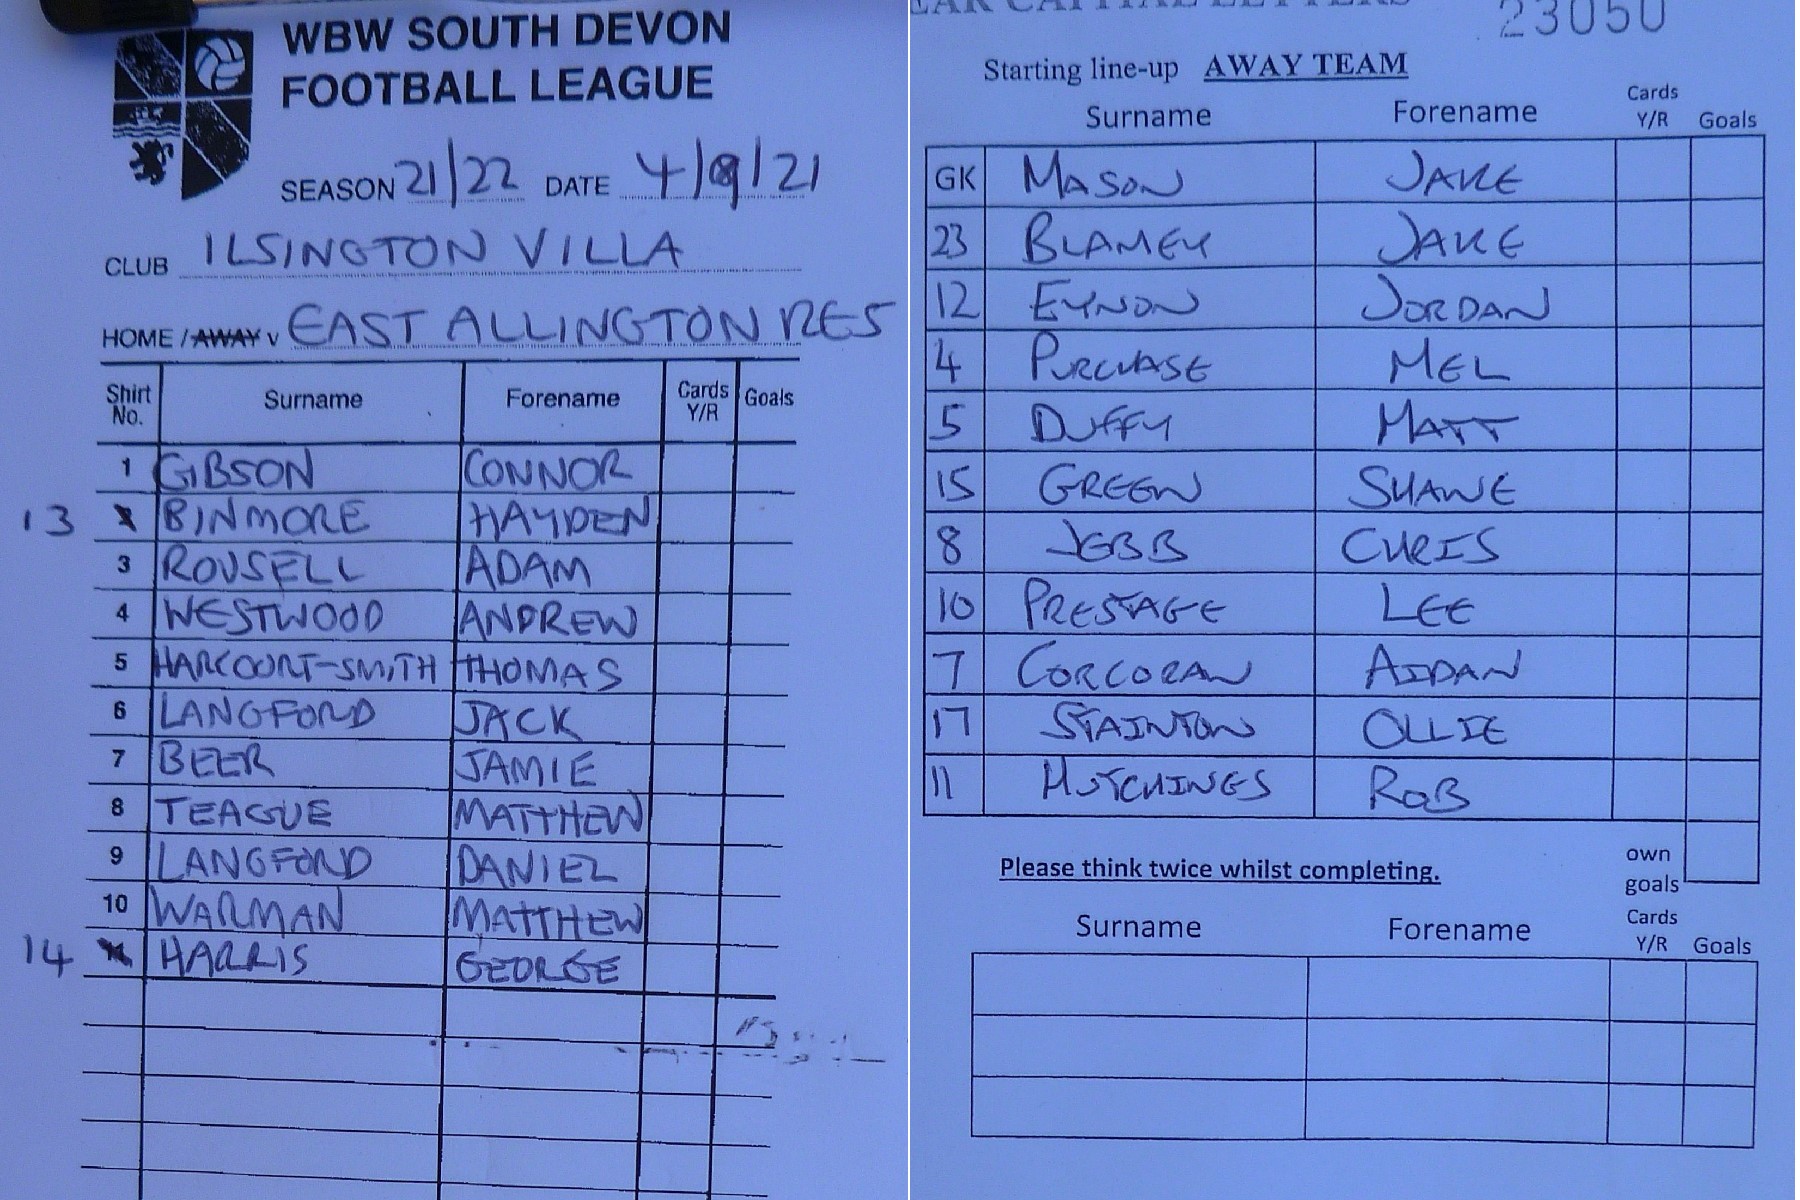 WBW SOUTH DEVON
FOOTBALL LEAGUE
SEASON 21/22 DATE 4/9/21
CLUB ILSINGTON VILLA
HOME / AWAY v EAST ALLINGTON RES
Shirt No. Surname Forename Cards Y/R Goals
1 GIBSON CONNOR
13 BINMORE HAYDEN
3 ROUSELL ADAM
4 WESTWOOD ANDREW
5 HARCOURT-SMITH THOMAS
6 LANGFORD JACK
7 BEER JAMIE
8 TEAGUE MATTHEW
9 LANGFORD DANIEL
10 WARMAN MATTHEW
14 HARRIS GEORGE
CAPITAL LETTERS
23050
Starting line-up AWAY TEAM
Surname Forename Cards Y/R Goals
GK MASON JAKE
23 BLAMEY JAKE
12 EYNON JORDAN
4 PURCHASE MEL
5 DUFFY MATT
15 GREEN SHANE
8 JEBB CHRIS
10 PRESTAGE LEE
7 CORCORAN AIDAN
17 STAINTON OLLIE
11 HUTCHINGS ROB
Please think twice whilst completing.
own goals
Surname Forename Cards Y/R Goals